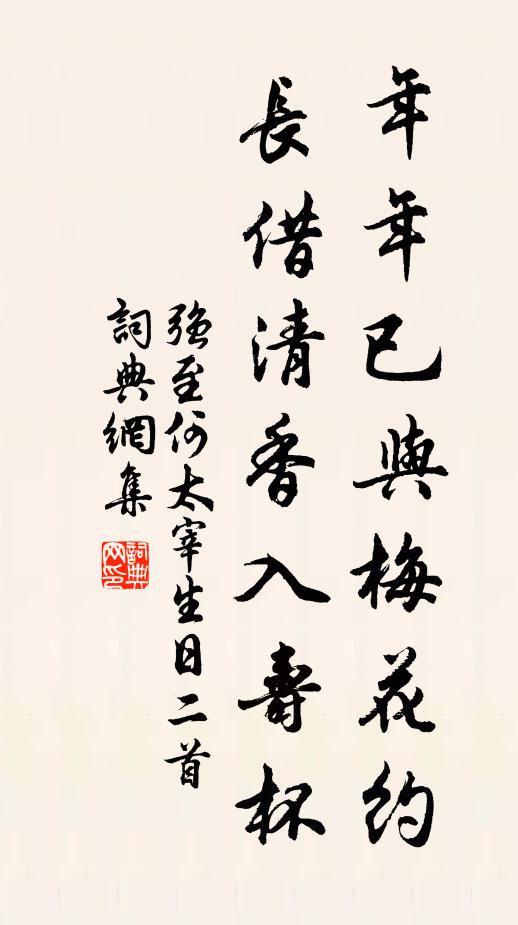 年年已與梅花約
長借清香入壽杯
強至何太宰生日二首
詞典網集
詞典网印